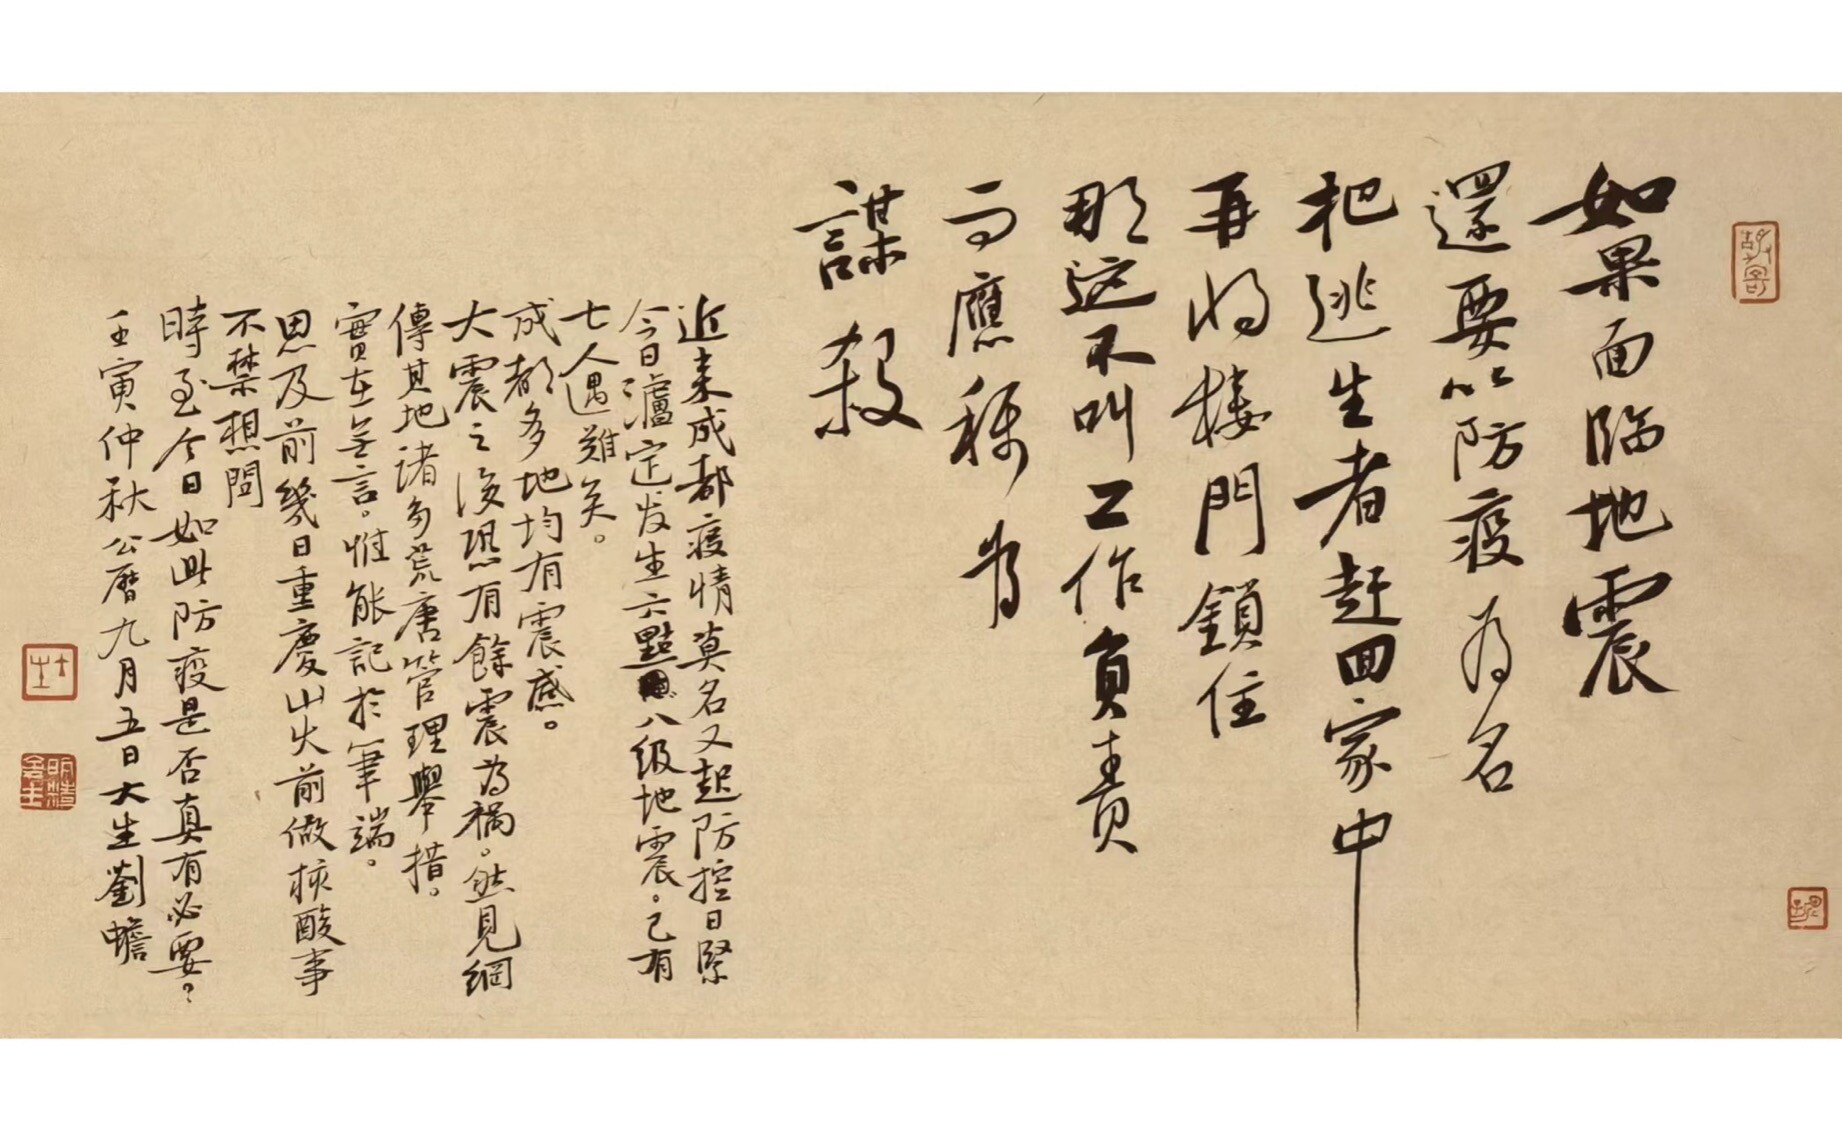 如果面临地震
還要以防疫为名
把逃生者赶回家中
再将楼門鎖住
那这不叫工作負責
而應称为
謀殺
近来成都疫情莫名又起防控日緊
今日瀘定发生六點八级地震。已有
七人遇難矣。
成都多地均有震感。
大震之後恐有餘震為禍。然見網
傳其地諸多荒唐管理舉措。
實在無言。惟能記於筆端。
思及前幾日重慶山火前做核酸事
不禁想問
時至今日如此防疫是否真有必要?
壬寅仲秋公曆九月五日大生劉蟾